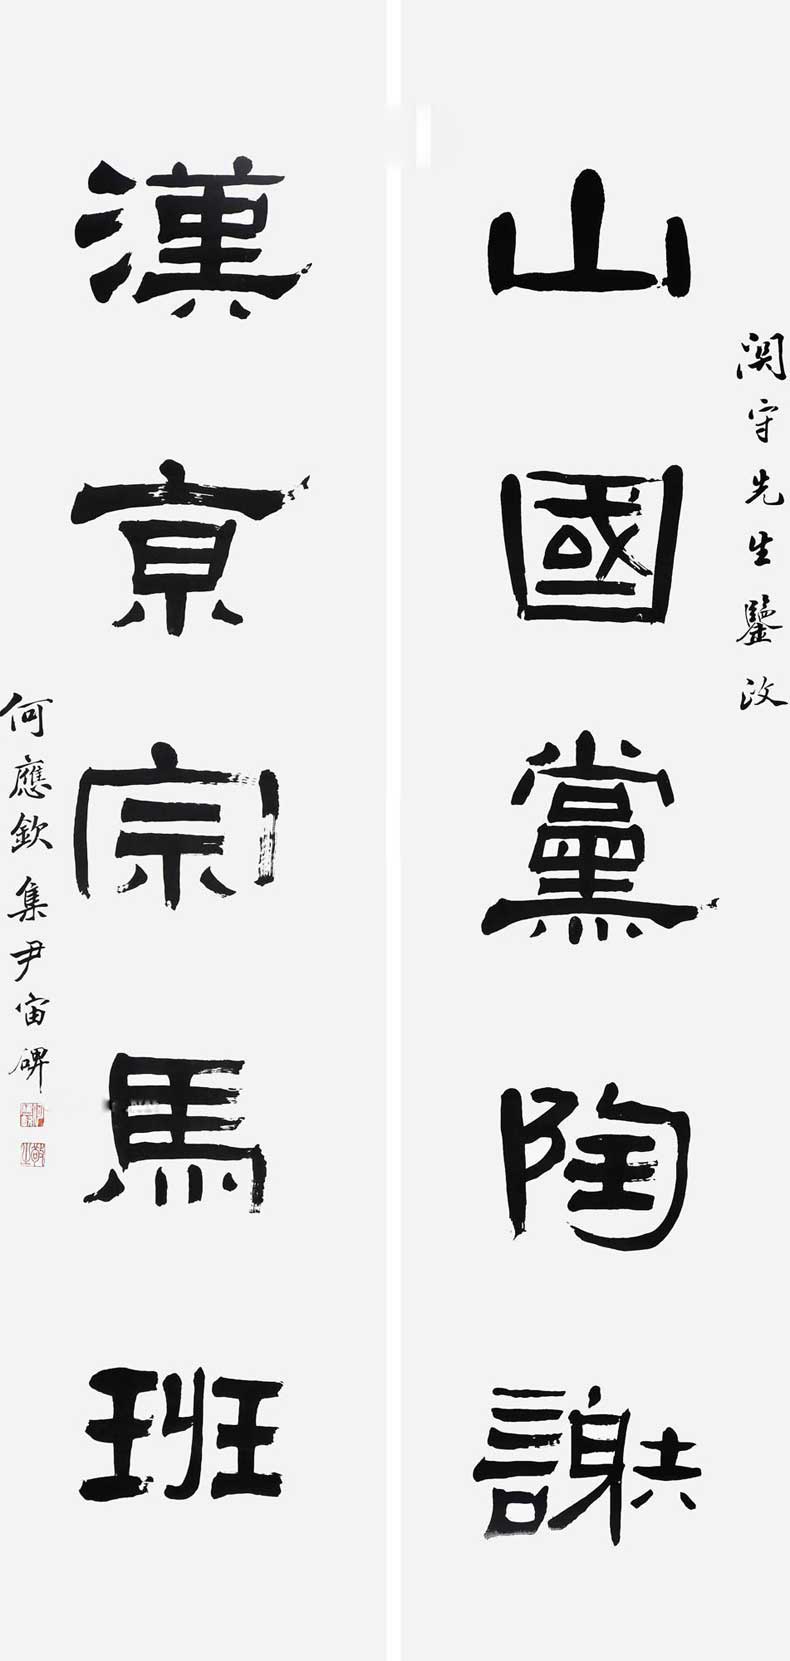 守先生鑒政
山國黨陶謝
漢亰宗馬班
何應欽集尹宙碑